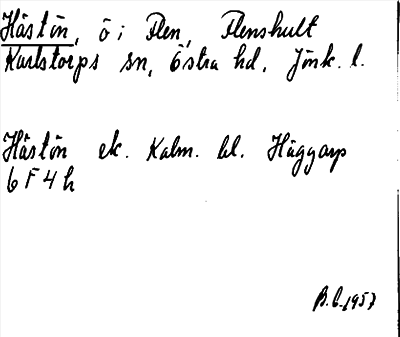 Hästön, ö i Flen, Flenshult
Karlstorps sn, Östra hd, Jönk. l.
Hästön ek. Kalm. bl. Häggarp
6 F 4 h
B.L. 1957